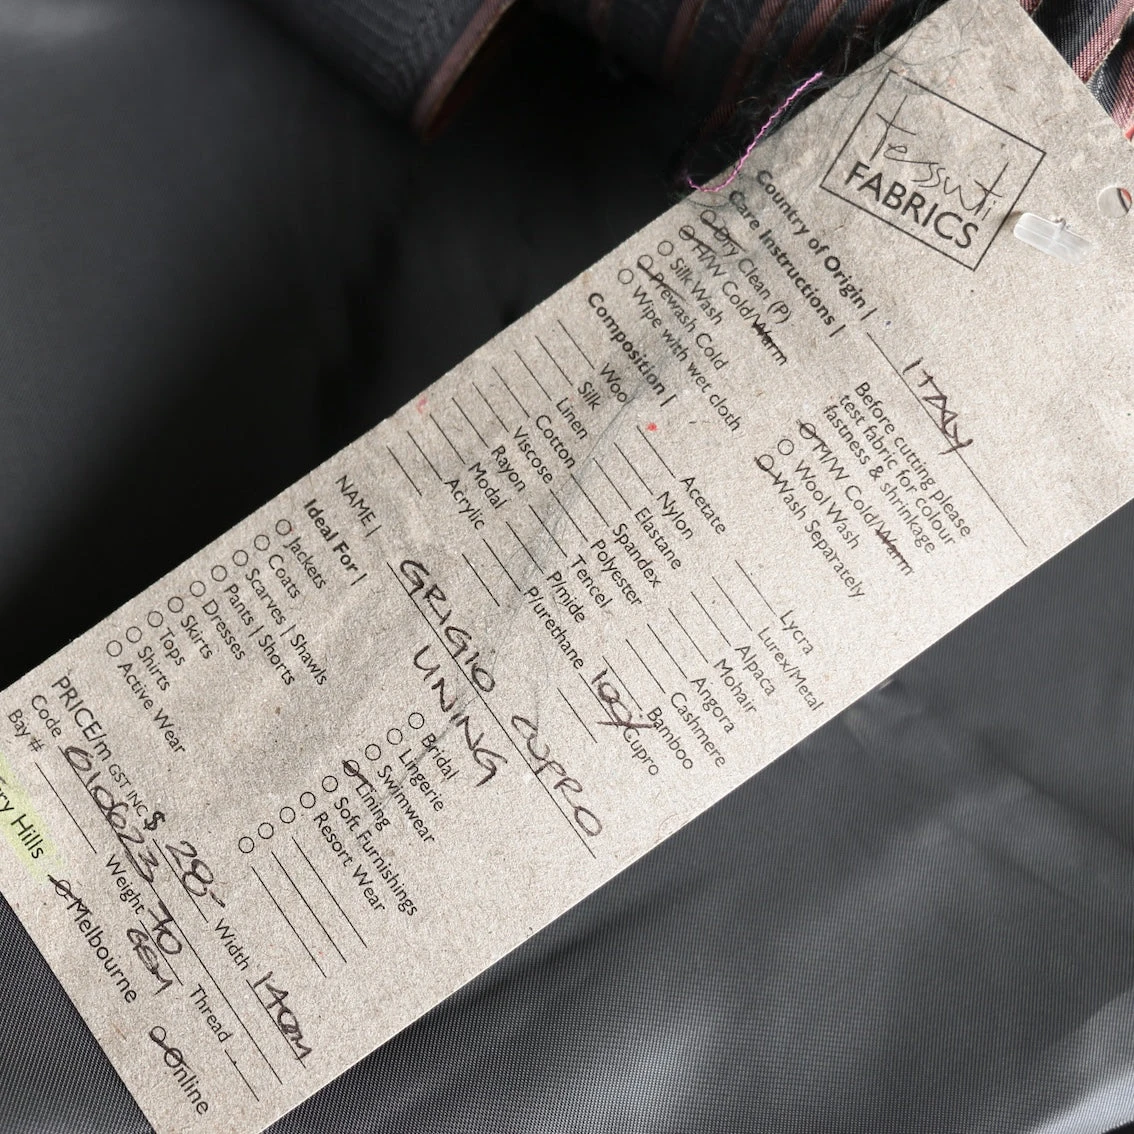 tessuti
FABRICS
Country of Origin | ITALY
Care Instructions |
Dry Clean (P)
H/W Cold/Warm
Silk Wash
Prewash Cold
Wipe with wet cloth
Before cutting please
test fabric for colour
fastness & shrinkage
M/W Cold/Warm
Wool Wash
Wash Separately
Composition |
Wool
Silk
Linen
Cotton
Viscose
Rayon
Modal
Acrylic
Acetate
Nylon
Elastane
Spandex
Polyester
Tencel
P/mide
P/urethane
Lycra
Lurex/Metal
Alpaca
Mohair
Angora
Cashmere
Bamboo
100% Cupro
NAME | GRIGIO CUPRO
LINING
Ideal For |
Jackets
Coats
Scarves | Shawls
Pants | Shorts
Dresses
Skirts
Tops
Shirts
Active Wear
Bridal
Lingerie
Swimwear
Lining
Soft Furnishings
Resort Wear
PRICE/m GST INC $ 28- Width 140cm
Code 010623 Weight 70 GSM Thread
Bay #
Hills Melbourne Online